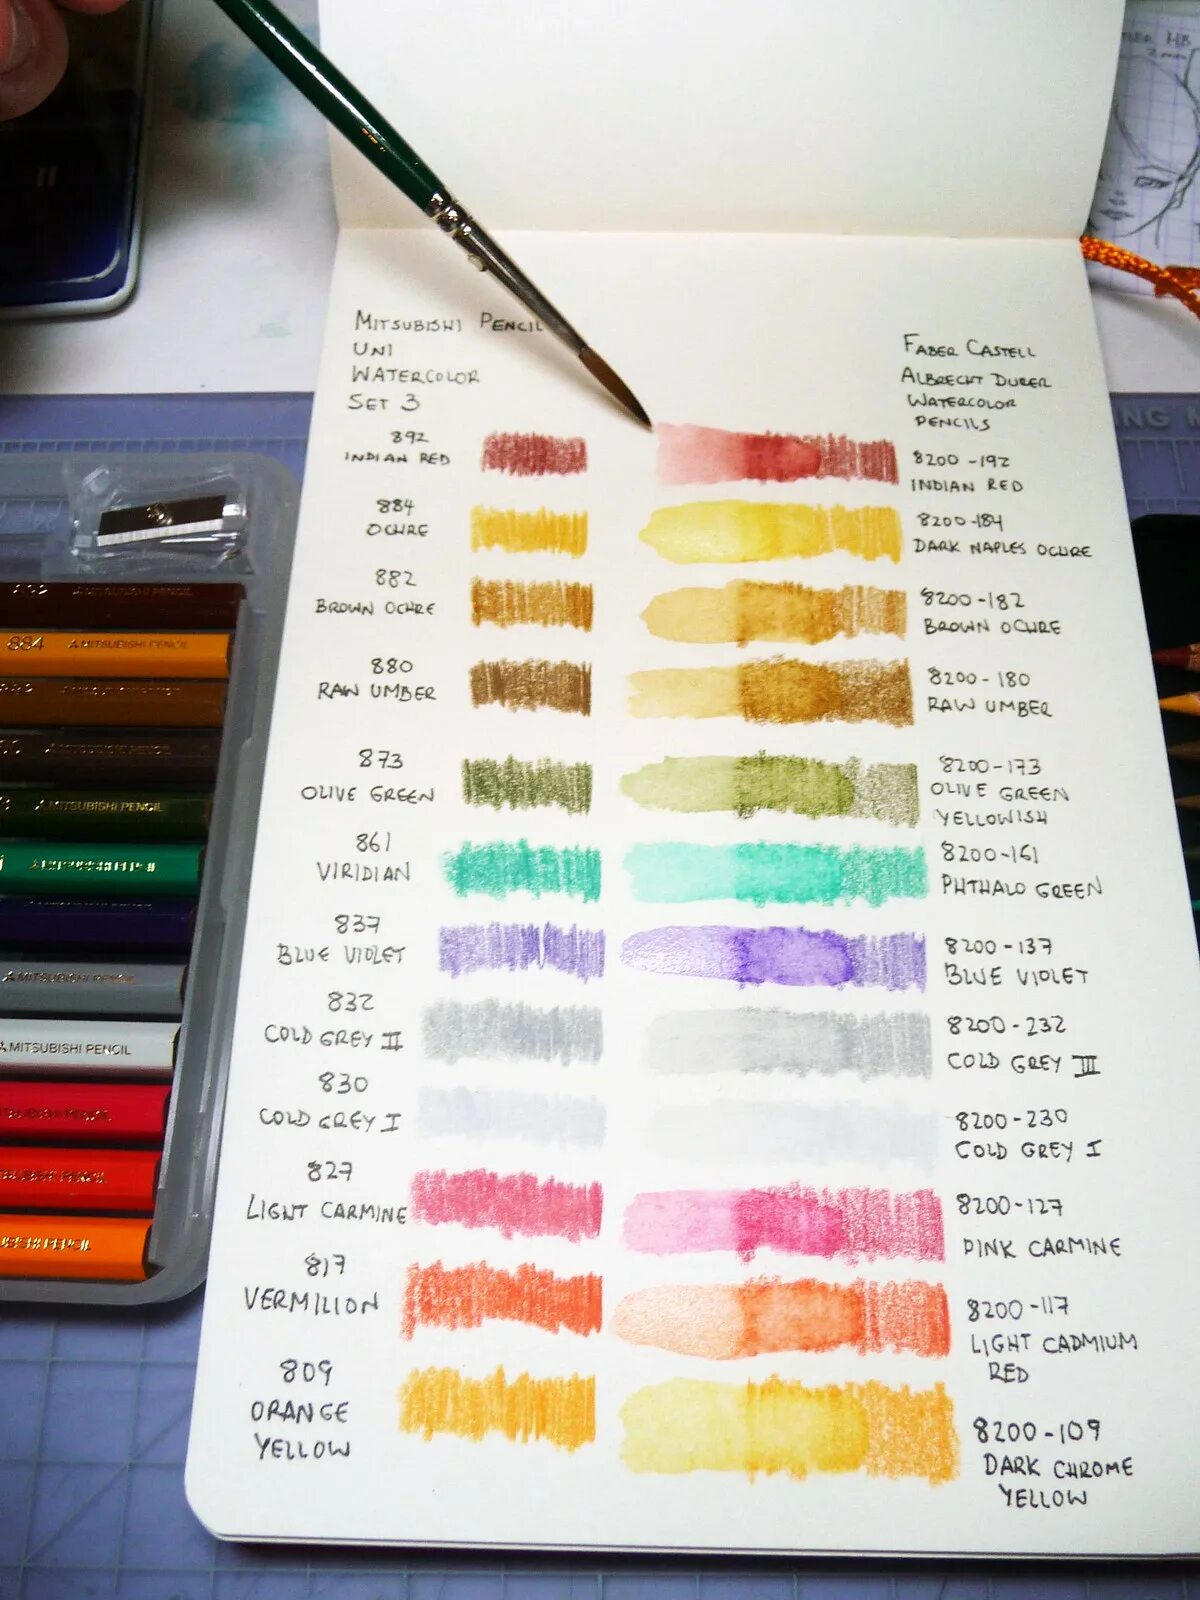 MITSUBISHI PENCIL
UNI
WATERCOLOR
SET 3
FABER CASTELL
ALBRECHT DURER
WATERCOLOR
PENCILS
892
INDIAN RED
8200-192
INDIAN RED
884
OCHRE
8200-184
DARK NAPLES OCHRE
882
BROWN OCHRE
8200-182
BROWN OCHRE
880
RAW UMBER
8200-180
RAW UMBER
873
OLIVE GREEN
8200-173
OLIVE GREEN
YELLOWISH
861
VIRIDIAN
8200-161
PHTHALO GREEN
837
BLUE VIOLET
8200-137
BLUE VIOLET
832
COLD GREY II
8200-232
COLD GREY III
830
COLD GREY I
8200-230
COLD GREY I
827
LIGHT CARMINE
8200-127
PINK CARMINE
817
VERMILION
8200-117
LIGHT CADMIUM
RED
809
ORANGE
YELLOW
8200-109
DARK CHROME
YELLOW
MITSUBISHI PENCIL
884 MITSUBISHI PENCIL
MITSUBISHI PENCIL
MITSUBISHI PENCIL
MITSUBISHI PENCIL
MITSUBISHI PENCIL
MITSUBISHI PENCIL
MITSUBISHI PENCIL
MITSUBISHI PENCIL
PENCIL
PENCIL
PENCIL
HB
2mm